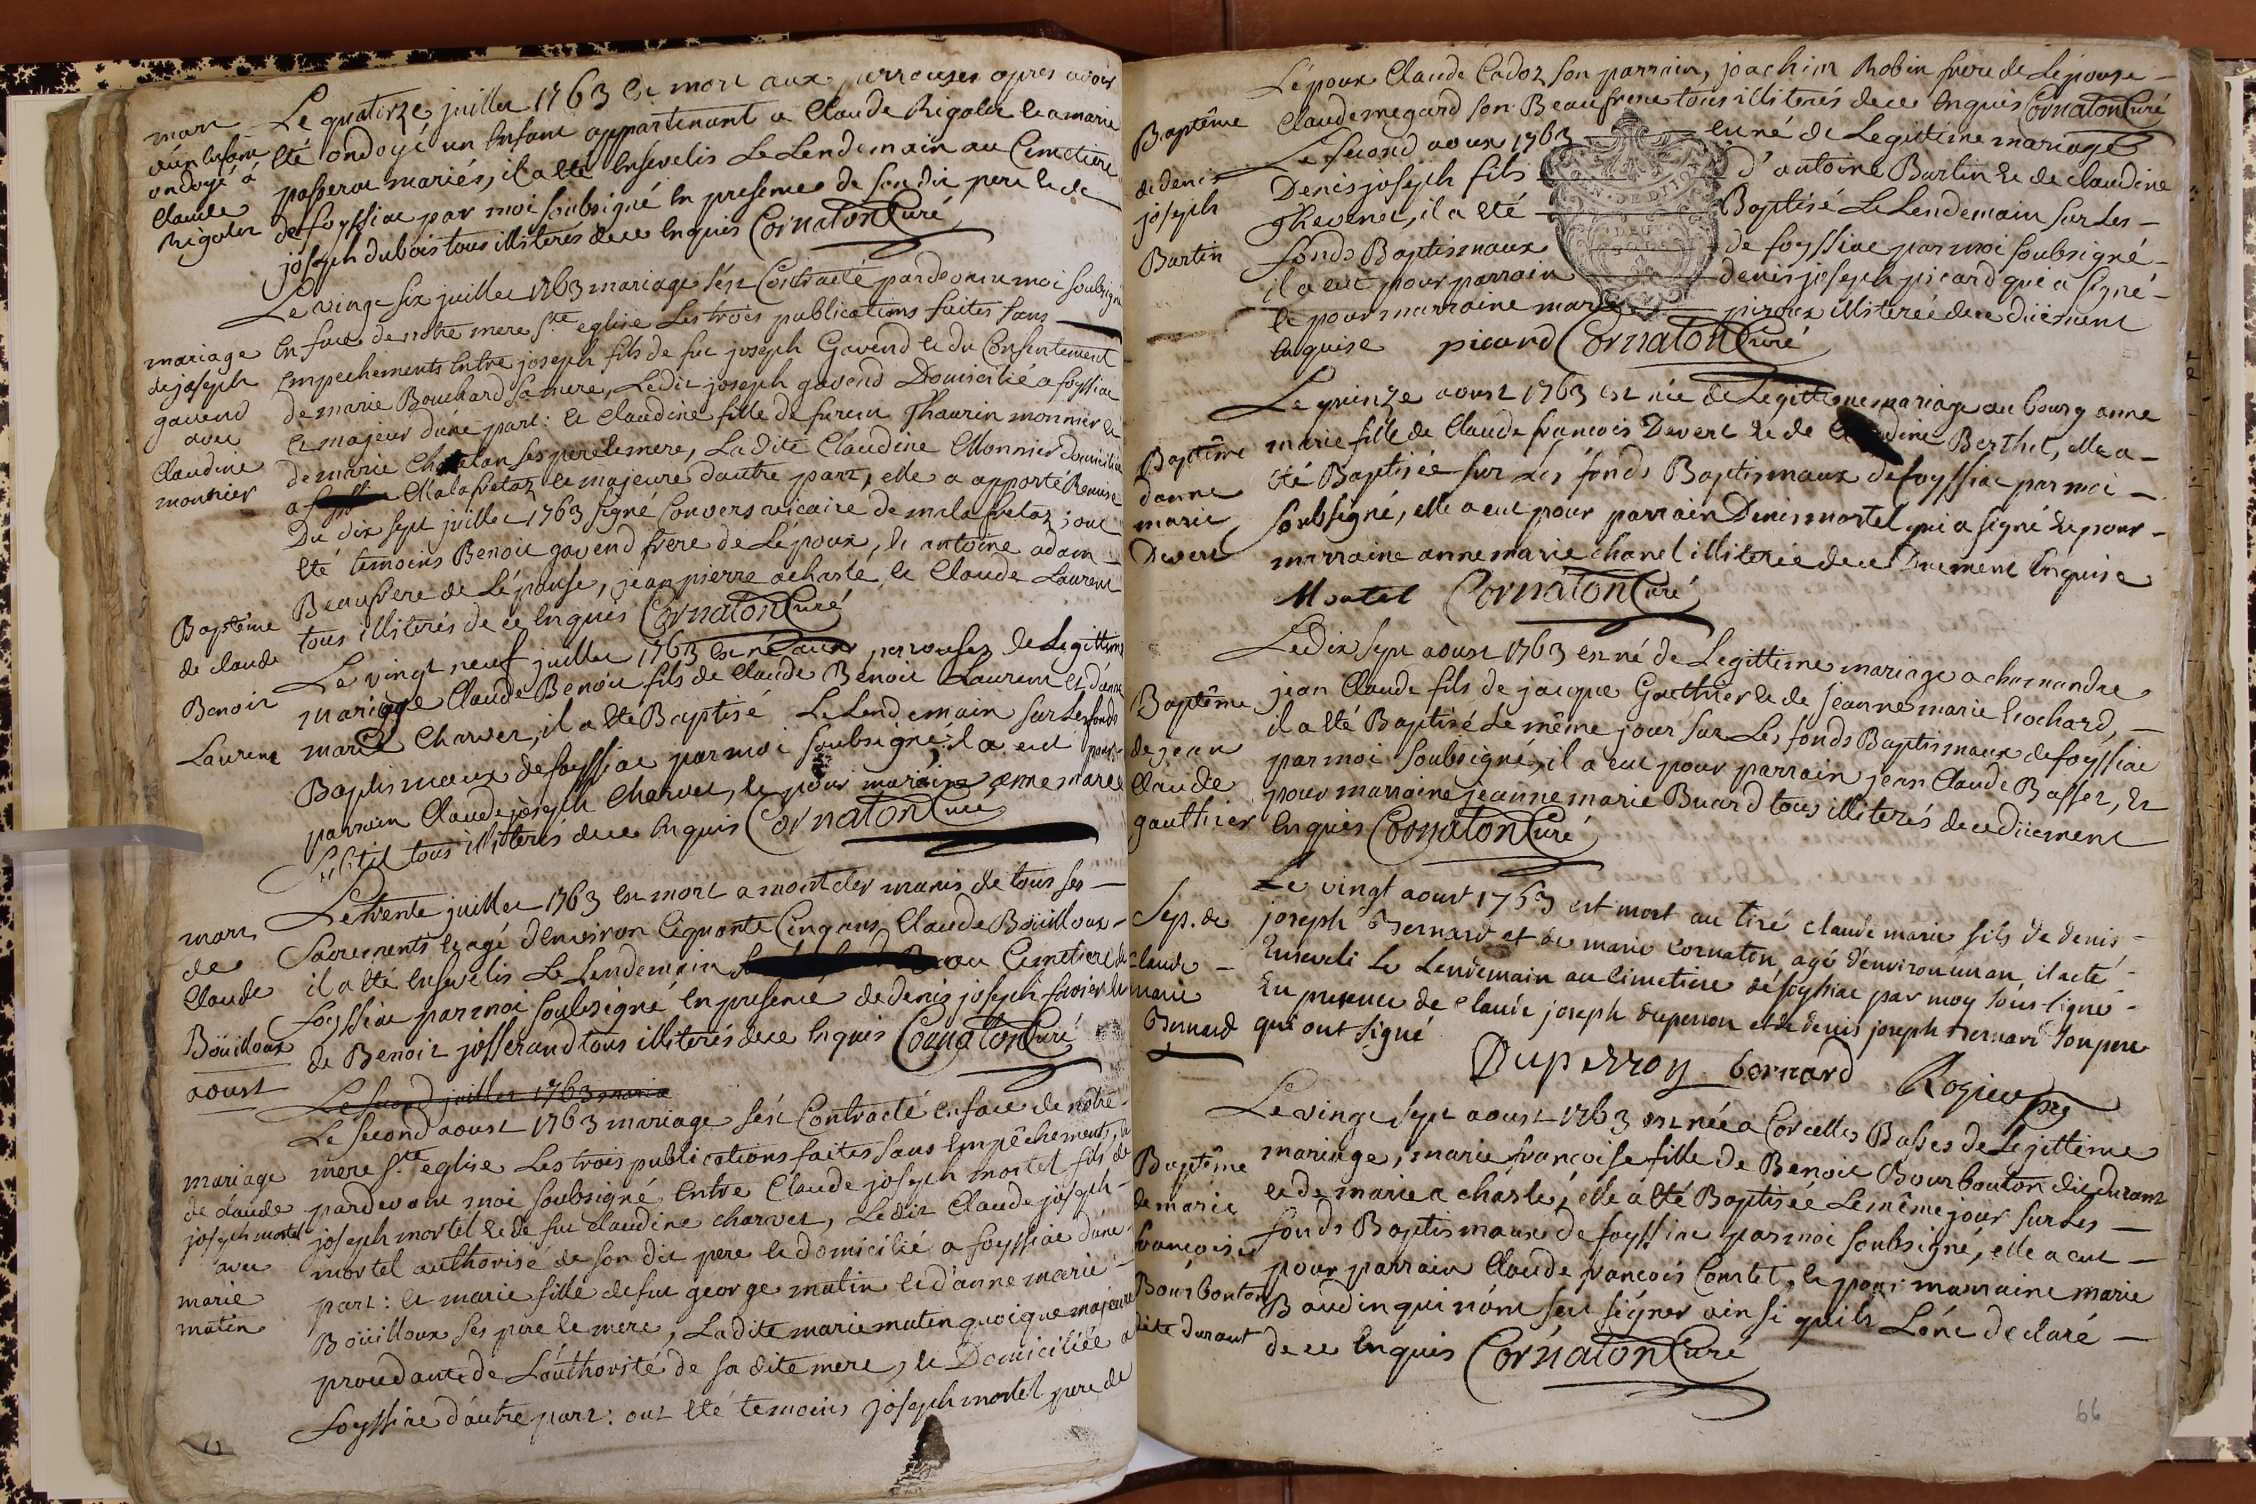 mort
d'un enfant
ondoyé a
Claude
Rigolet
Le quatorze juillet 1763 est mort aux perrouses apres avoir
été ondoyé un enfant appartenant a Claude Rigolet et a marie
passerat mariés, il a été ensevelis Le Lendemain au Cimetiere
de foyssiac par moi soubsigné en presence de son dit pere et de
joseph dubois tous illiterés de ce enquis Cornaton Curé
mariage
de joseph
gavend
avec
Claudine
monnier
Le vingt six juillet 1763 mariage s'est Contracté pardevant moi soubsigné
en face de notre mere Ste eglise Les trois publications faites sans
empechements Entre joseph fils de feu joseph Gavend et du Consentement
de marie Bouchard sa mere, Ledit joseph gavend Domicilié a foyssiac
et majeur d'une part : et Claudine fille de furcin Thaurin monnier et
de marie Chatelan ses pere et mere, Ladite Claudine Monnier domiciliée
a Malafretaz et majeure d'autre part, elle a apporté Remise
Du dix sept juillet 1763 signé Convers vicaire de malafretaz ; ont
été temoins Benoit gavend frere de L'époux, et antoine adam
Beaufrere de L'épouse, jean pierre acharlé et Claude Laurent
tous illiterés de ce enquis Cornaton Curé
Baptême
de claude
Benoit
Laurent
Le vingt neuf juillet 1763 est né aux perrouses de Legittime
mariage Claude Benoit fils de Claude Benoit Laurent et d'anne
marie Charvet, il a été Baptisé Le Lendemain sur Les fonds
Baptismaux de foyssiac par moi soubsigné ; il a eut pour
parrain Claude joseph Charvet, et pour maraine anne marie
tous illiterés de ce enquis Cornaton Curé
mort
de
Claude
Boüilloux
Le trente juillet 1763 est mort a montcler munis de tous ses
Sacrements et agé d'environ Cinquante Cinq ans Claude Boüilloux
il a été ensevelis Le Lendemain au Cimetiere de
foyssiac par moi soubsigné en presence de denis joseph favier et
de Benoit josserand tous illiterés de ce enquis Cornaton Curé
aoust
Le second juillet 1763 maria
mariage
de claude
joseph mortel
avec
marie
matin
Le second aoust 1763 mariage s'est Contracté en face de notre
mere Ste eglise Les trois publications faites sans empêchements, et
pardevant moi soubsigné entre Claude joseph mortel fils de
joseph mortel et de feu claudine charvet, Ledit Claude joseph
mortel authorisé de son dit pere et domicilié a foyssiac d'une
part : et marie fille de feu george matin et d'anne marie
Boüilloux ses pere et mere, Ladite marie matin quoique majeure
procedante de L'authorité de sa dite mere, et Domiciliée a
foyssiac d'autre part : ont été temoins joseph mortel pere de
L'époux Claude Cadoz son parrain, joachim Robin frere de L'épouse
Claude megard son Beaufrere tous illiterés de ce enquis Cornaton Curé
Baptême
de denis
joseph
Bartin
Le second aoust 1763 est né de Legitime mariage
Denis joseph fils d'antoine Bartin et de claudine
Thevenet, il a été Baptisé Le Lendemain sur Les
fonds Baptismaux de foyssiac par moi soubsigné
il a eut pour parrain denis joseph picard qui a signé
et pour marraine marie piroux illiterée de ce düement
enquise picard Cornaton Curé
Baptême
d'anne
marie
Devert
Le quinze aoust 1763 est née de Legittime mariage au bourg anne
marie fille de Claude françois Devert et de Claudine Berthet, elle a
été Baptisée sur Les fonds Baptismaux de foyssiac par moi
soubsigné, elle a eut pour parrain Denis mortel qui a signé et pour
marraine anne marie chanel illiterée de ce Duement enquise
Mortel Cornaton Curé
Baptême
de jean
Claude
gauthier
Le dix sept aoust 1763 est né de Legittime mariage a charnandre
jean Claude fils de jacque Gauthier et de jeanne marie Cochard,
il a été Baptisé Le même jour sur Les fonds Baptismaux de foyssiac
par moi soubsigné, il a eut pour parrain jean Claude Basset, et
pour marraine jeanne marie Buard tous illiterés de ce düement
enquis Cornaton Curé
Sep. de
claude
marie
Bernard
Le vingt aoust 1763 est mort au tiré claude marie fils de denis
joseph Bernard et de marie cornaton, agé d'environ un an, il a eté
Enseveli Le Lendemain au cimetiere de foyssiac par moy sous signé
En presence de claude joseph duperron et de denis joseph Bernard son pere
qui ont signé
Duperron bernard Rogier ptre
Baptême
de marie
françoise
Bourbonton
dite durant
Le vingt sept aoust 1763 est née a Corcelles Basses de Legittime
mariage, marie françoise fille de Benoit Bourbouton dit durant
et de marie acharlé, elle a été Baptisée Le même jour sur Les
fonds Baptismaux de foyssiac par moi soubsigné, elle a eut
pour parrain Claude francois Contet, et pour marraine marie
Baudin qui n'ont seu signer ainsi qu'ils L'ont declaré
de ce enquis Cornaton Curé
66